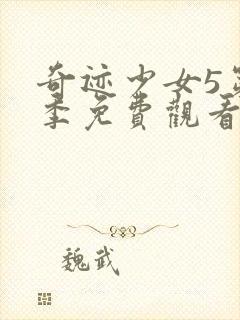 奇迹少女5第
季免費觀看
魏武